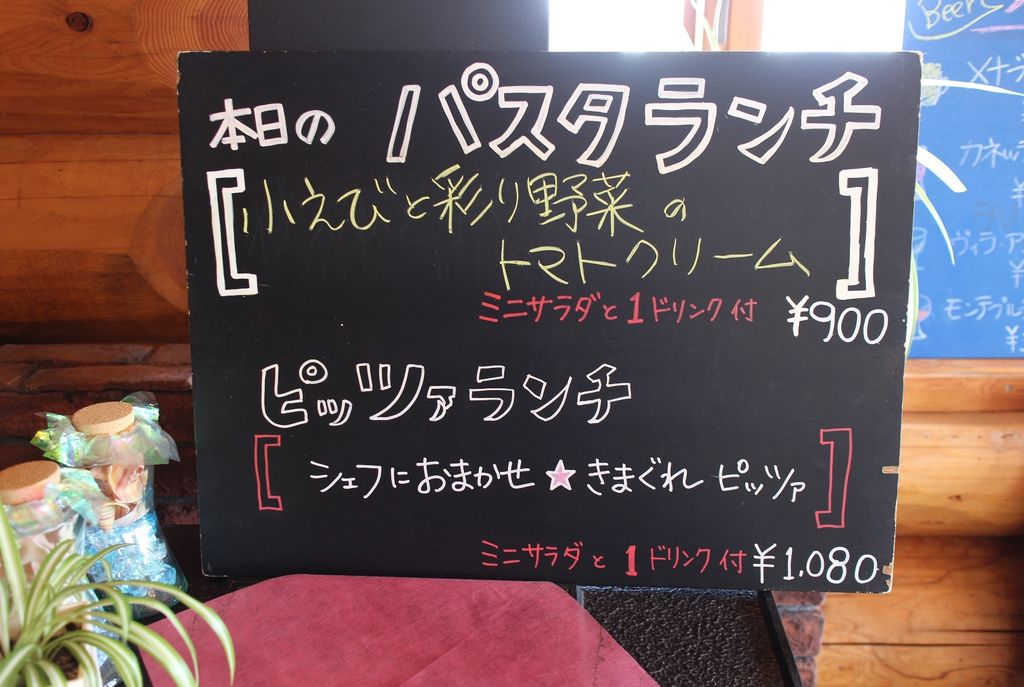 本日の パスタランチ
小えびと彩り野菜の
トマトクリーム
ミニサラダと1ドリンク付 ¥900
ピッツァランチ
シェフにおまかせ★きまぐれ ピッツァ
ミニサラダと1ドリンク付 ¥1,080
Beer
メナー
カネッ
¥
ヴィラ・ア
¥
モンテプル
¥